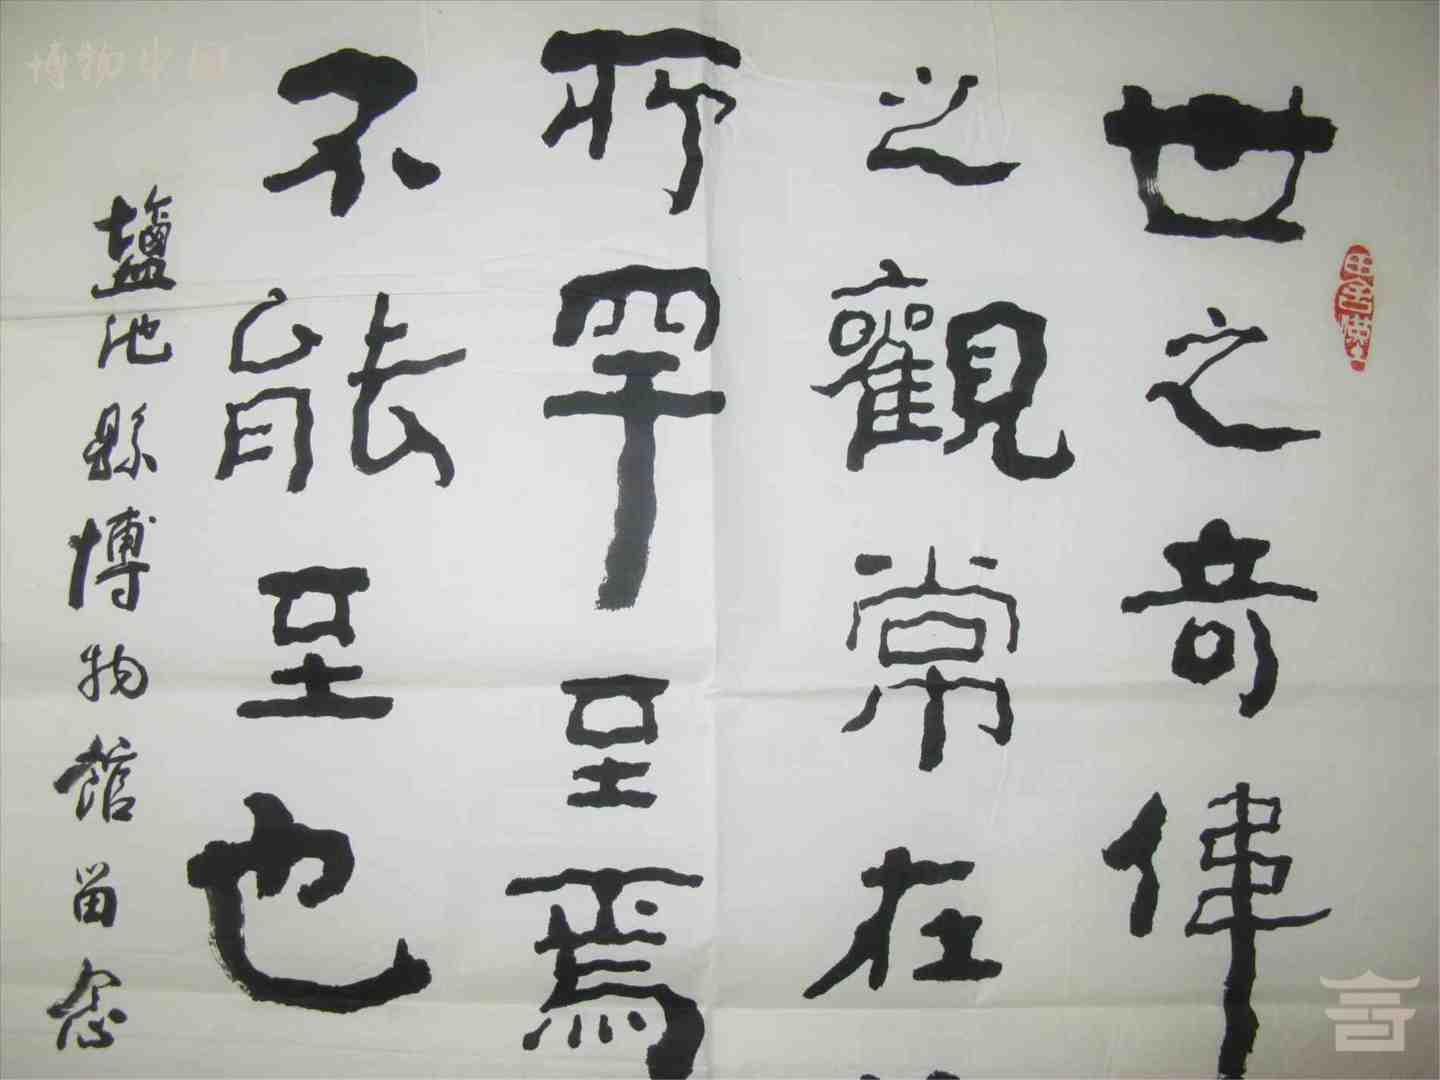 世之奇偉
之觀常在
所罕至焉
不能至也
鹽池縣博物館留念
博物中国